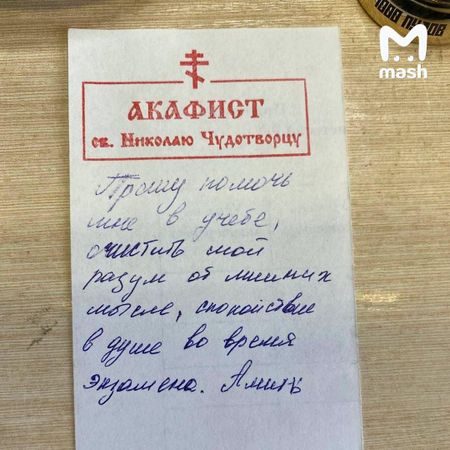 1000 ПУДОВ
mash
АКАФИСТ
св. Николаю Чудотворцу
Прошу помочь
мне в учебе,
очистить мой
разум от лишних
мысле, спокойствие
в душе во время
экзамена. Аминь